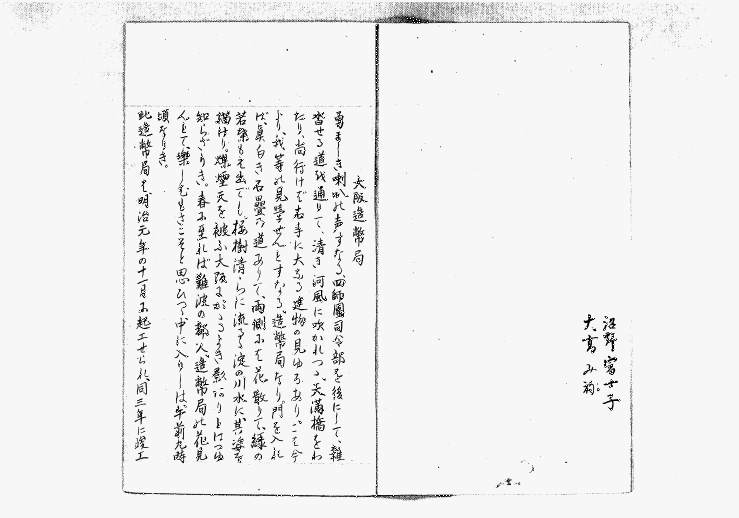 沼野富士子
大高みね
大阪造幣局
勇ましき喇叭の声すなる、四師團司令部を後にして、雑
沓せる道を通りて、清き河風に吹かれつゝ、天満橋をわ
たり、尚行けば右手に大なる建物の見ゆるあり、こを今
より、我等の見學せんとすなる、造幣局なり。門を入れ
ば、真白き石疊の道ありて、両側には花散りて、緑の
若葉もえ出でし、桜樹清らに流るゝ淀の川水に、其姿を
描けり。煤煙天を被ふ大阪にかゝるよき影ありとはつゆ
知らざりき。春に至れば難波の都人、造幣局の花見
んとて、樂しむもさこそと思ひつゝ中に入りしは午前九時
頃なりき。
此造幣局は、明治元年の十一月に起工せられ、同三年に竣工